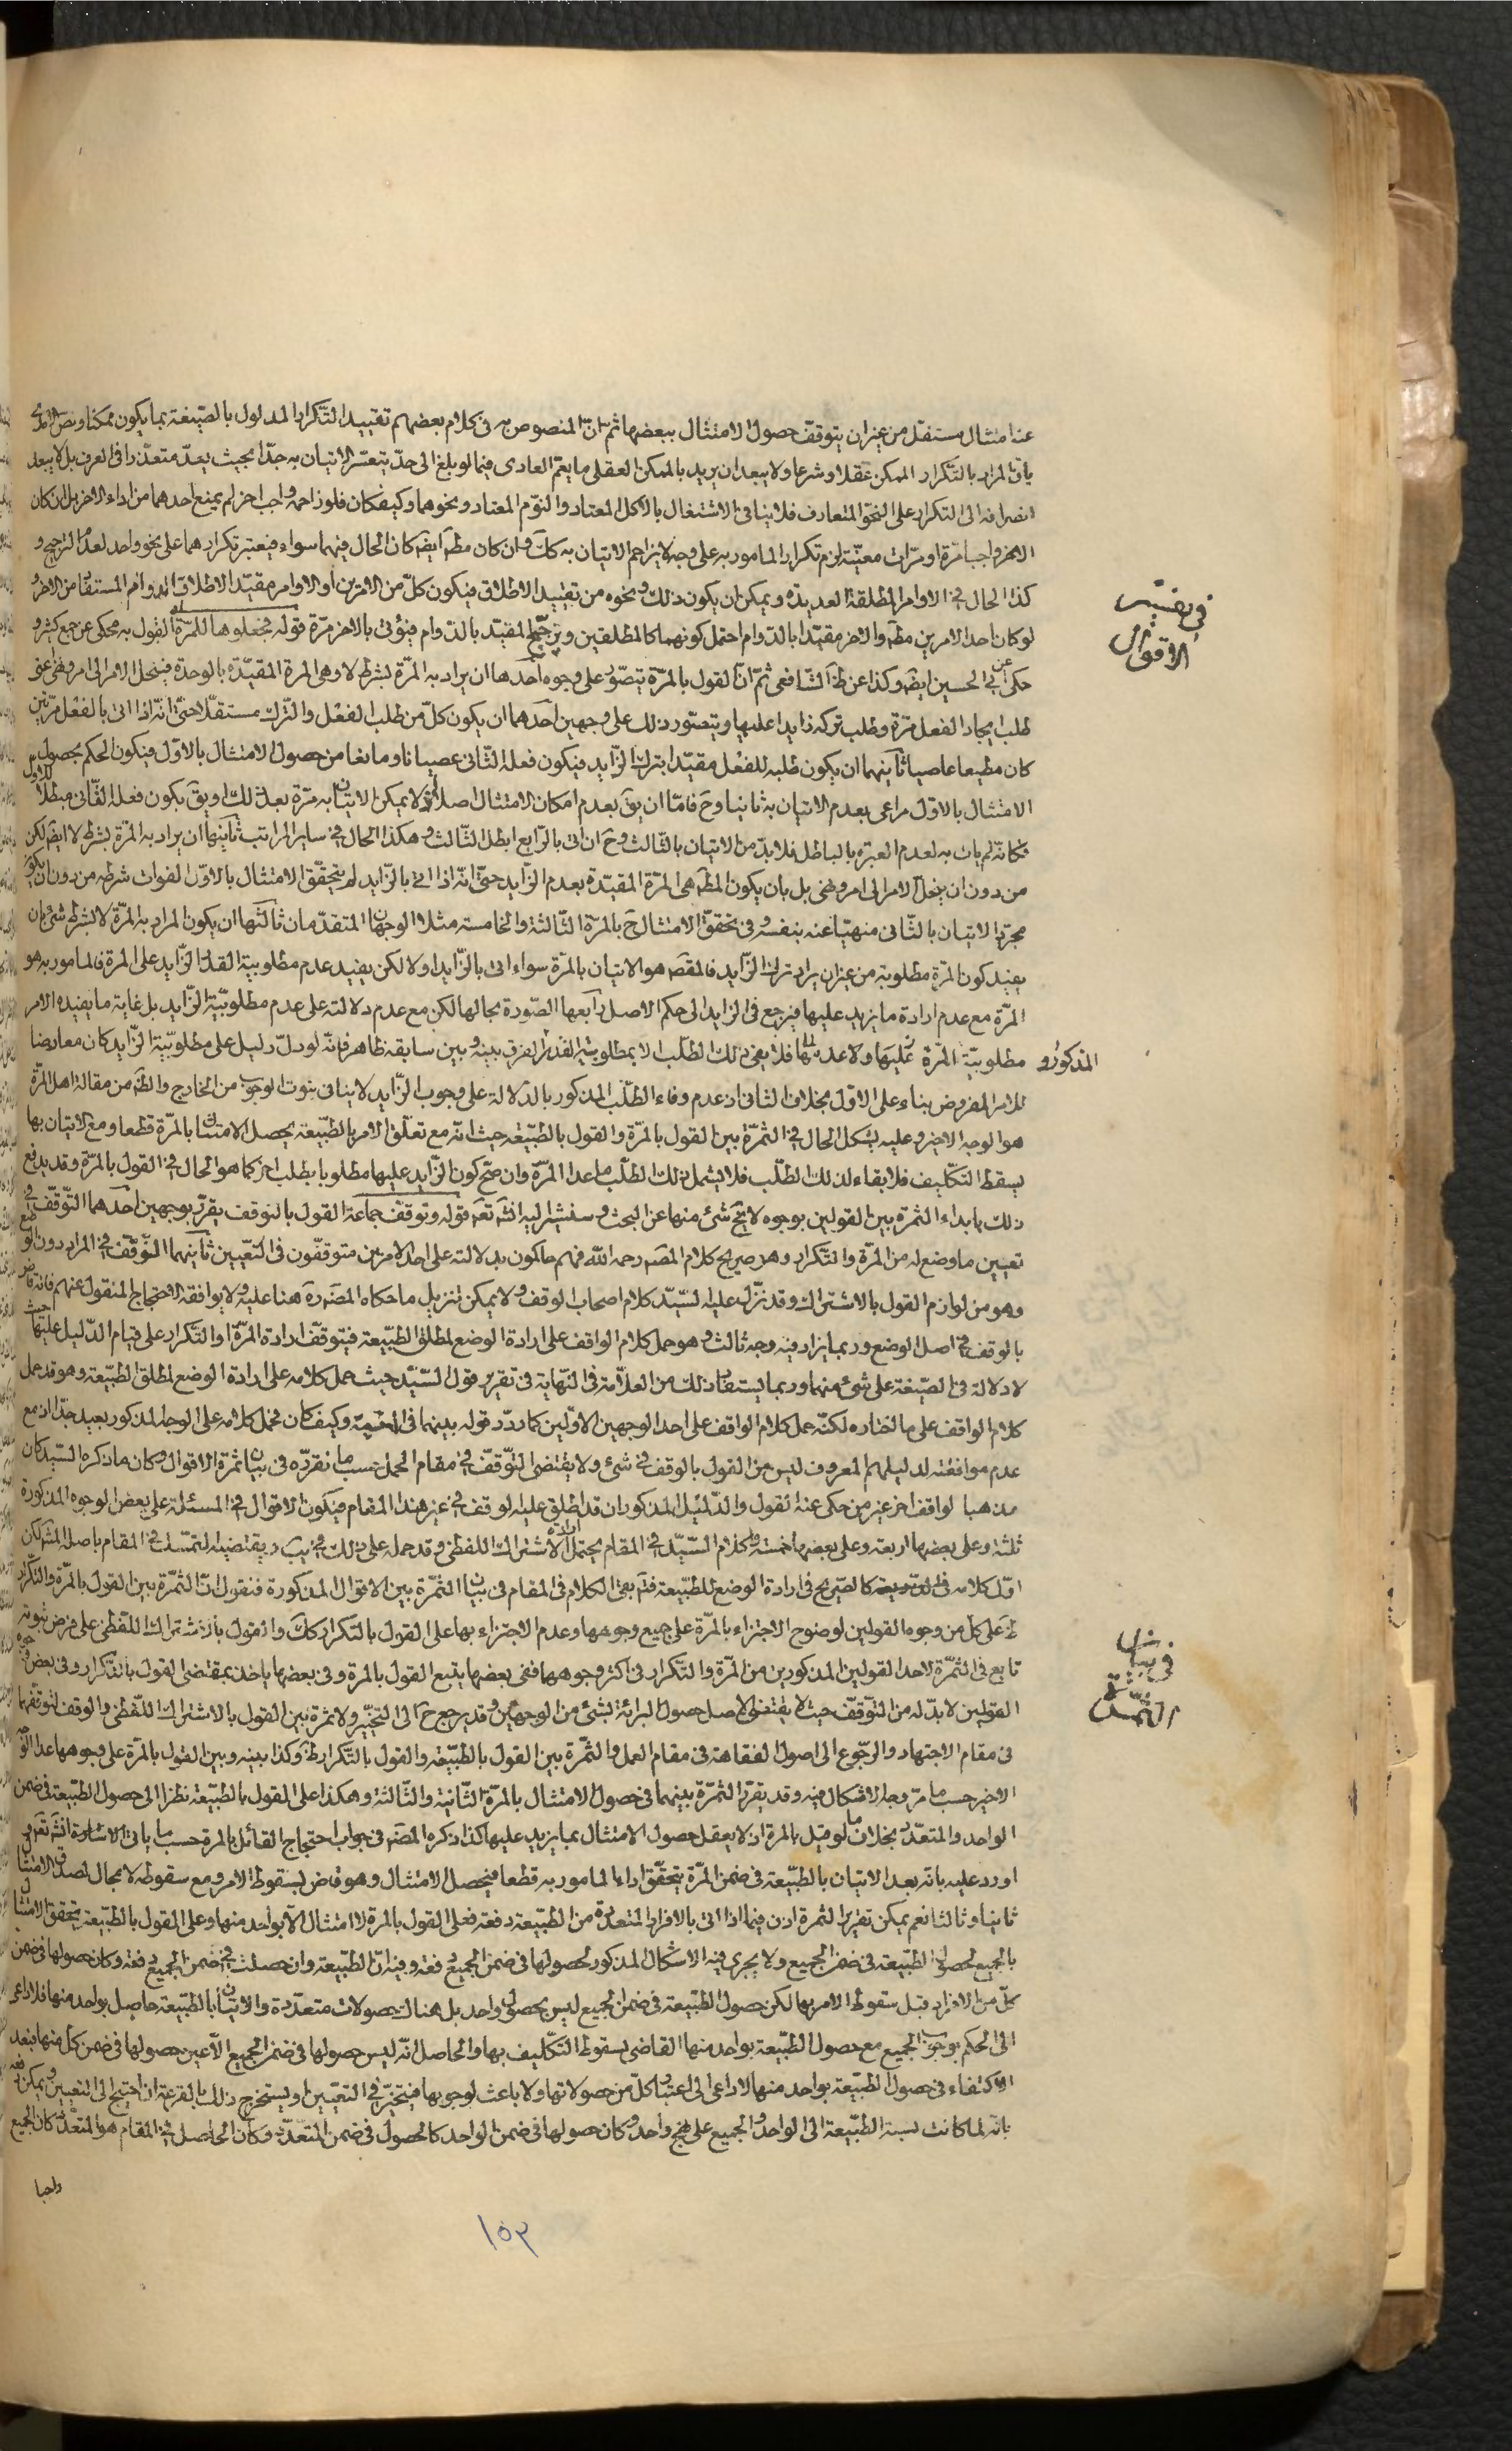 عند امتثال مستقل من غير ان يتوقف حصول الامتثال ببعضها ثم ان المنصوص به فى كلام بعضهم تقييد التكرار المدلول بالصيغة بما يكون ممكنا ونص
بان المراد بالتكرار الممكن عقلا وشرعا ولا يبعد ان يريد بالممكن العقلى ما يعم العادى فيما لو بلغ الى حد يتعسر الاتيان به جدا بحيث يعد متعذرا فى العرف بل لا يبعد
انصرافه الى التكرار على النحو المتعارف فلا ينافى الاشتغال بالاكل المعتاد والنوم المعتاد ونحوهما وكيف كان فلو زاحمه واجب اخر لم يمنع احدهما من اداء الاخر بل ان كان
الاخر واجبا مرة او مرات معينة لزم تكرار المامور به على وجه لا يزاحم الاتيان به كك وان كان مطم ايضه كان الحال فيهما سواء فيعتبر تكرارهما على نحو واحد لعدم الترجيح و
كذا الحال فى الاوامر المطلقة العديدة ويمكن ان يكون ذلك ونحوه من تقييد الاطلاق فيكون كل من الامرين او الاوامر مقيد الاطلاق الدوام المستفاد من الاخر و
لو كان احد الامرين مطم والاخر مقيدا بالدوام احتمل كونهما كالمطلقين وترجيح المقيد بالدوام فيؤتى بالاخر مرة قوله فجعلوها للمرة القول به محكى عن جمع كثير و
حكى عن ابى الحسين ايضه وكذا عن ظ الشافعى ثم ان القول بالمرة يتصور على وجوه احدها ان يراد به المرة بشرط لا وهى المرة المقيدة بالوحدة فينحل الامر الى امر ونهى اعنى
طلب ايجاد الفعل مرة وطلب تركه زايدا عليها ويتصور ذلك على وجهين احدهما ان يكون كل من طلب الفعل والترك مستقلا حتى انه اذا اتى بالفعل مرتين
كان مطيعا عاصيا ثانيهما ان يكون طلبه للفعل مقيدا بترك الزايد فيكون فعله الثانى عصيانا ومانعا من حصول الامتثال بالاول فيكون الحكم بحصول
الامتثال بالاول مراعى بعدم الاتيان به ثانيا وح فاما ان يق بعدم امكان الامتثال اصلا اذ لا يمكن الاتيان به مرة بعد ذلك او يق يكون فعله الثانى مبطلا للاول
فكانه لم يات به لعدم العبرة بالباطل فلا بد من الاتيان بالثالث وح ان اتى بالرابع ابطل الثالث وهكذا الحال فى ساير المراتب ثانيها ان يراد به المرة بشرط لا ايضه لكن
من دون ان ينحل الامر الى امر ونهى بل بان يكون المطم هى المرة المقيدة بعدم الزايد حتى انه اذا اتى بالزايد لم يتحقق الامتثال بالاول لفوات شرطه من دون ان يكون
مجرد الاتيان بالثانى منهيا عنه بنفسه وفى تحقق الامتثال ح بالمرة الثالثة والخامسة مثلا الوجهان المتقدمان ثالثها ان يكون المراد به المرة لا بشرط شئ بان
يفيد كون المرة مطلوبة من غير ان يراد ترك الزايد فالمقصه هو الاتيان بالمرة سواء اتى بالزايد او لا لكن يفيد عدم مطلوبية القدر الزايد على المرة فالمامور به هو
المرة مع عدم ارادة ما يزيد عليها فيرجع فى الزايد الى حكم الاصل رابعها الصورة بحالها لكن مع عدم دلالته على عدم مطلوبية الزايد بل غاية ما يفيده الامر
مطلوبية المرة فلا يفى ذلك الطلب الا بمطلوبية القدر المذكور والفرق بينه وبين سابقه ظاهر فانه لو دل دليل على مطلوبية الزايد كان معارضا
للامر المفروض بناء على الاول بخلاف الثانى اذ عدم وفاء الطلب المذكور بالدلالة على وجوب الزايد لا ينافى ثبوت الوجوب من الخارج والظه من مقالة اهل المرة
هو الوجه الاخير وعليه يشكل الحال فى الثمرة بين القول بالمرة والقول بالطبيعة حيث انه مع تعلق الامر بالطبيعة يحصل الامتثال بالمرة قطعا ومع الاتيان بها
يسقط التكليف فلا بقاء لذلك الطلب فلا يشمل ذلك الطلب ما عدا المرة وان صح كون الزايد عليها مطلوبا بطلب اخر كما هو الحال فى القول بالمرة وقد يدفع
ذلك بابداء الثمرة بين القولين بوجوه لا يخ شئ منها عن البحث وسنشير اليه انشه تعه قوله وتوقف جماعة القول بالتوقف يقرر بوجهين احدهما التوقف فى
تعيين ما وضع له من المرة والتكرار وهو صريح كلام المصه رحمه الله فهم حاكمون بدلالته على احد الامرين متوقفون فى التعيين ثانيهما التوقف فى المراد دون الوضع
وهو من لوازم القول بالاشتراك وقد نزل عليه السيد كلام اصحاب الوقف ولا يمكن تنزيل ما حكاه المصه ره هنا عليه ولا يوافقه الاحتجاج المنقول عنهم فانه قاض
بالوقف فى اصل الوضع وربما يزاد فيه وجه ثالث وهو حمل كلام الواقف على ارادة الوضع لمطلق الطبيعة فيتوقف ارادة المرة او التكرار على قيام الدليل عليها حيث
لا دلالة فى الصيغة على شئ منهما وربما يستفاد ذلك من العلامة فى النهاية فى تقرير قول السيد حيث حمل كلامه على ارادة الوضع لمطلق الطبيعة وهو قد حمل
كلام الواقف على ما اختاره لكنه حمل كلام الواقف على احد الوجهين الاولين كما ردد قوله بينهما فى وكيف كان فحمل كلامه على الوجه المذكور بعيد جدا اذ مع
عدم موافقته لدليلهم المعروف ليس من القول بالوقف فى شئ ولا يقتضى التوقف فى مقام الحمل حسب ما نقرره فى بيان ثمرة الاقوال وكان ما ذكره السيد كان
مذهبا لواقف اخر غير من حكى عنه القول والدليل المذكوران قد اطلق عليه الوقف فى غير هذا المقام فيكون الاقوال فى المسئلة على بعض الوجوه المذكورة
ثلثة وعلى بعضها اربعة وعلى بعضها خمسة وكلام السيد فى المقام يحتمل ارادة الاشتراك اللفظى وقد حمله على ذلك فى ويقتضيه التمسك فى المقام باصله المشهور لكن
اول كلامه فى كالصريح فى ارادة الوضع للطبيعة فتم بقى الكلام فى المقام فى بيان الثمرة بين الاقوال المذكورة فنقول ان الثمرة بين القول بالمرة والتكرار
ظ على كل من وجوه القولين لوضوح الاجتزاء بالمرة على جميع وجوهها وعدم الاجتزاء بها على القول بالتكرار كك والقول بالاشتراك اللفظى على فرض ثبوته
تابع فى الثمرة لاحد القولين المذكورين من المرة والتكرار فى اكثر وجوههما ففى بعضها يتبع القول بالمرة وفى بعضها ياخذ بمقتضى القول بالتكرار وفى بعض وجوه
القولين لا بد له من التوقف حيث لا يقتضى الاصل حصول البرائة بشئ من الوجهين وقد يرجع ح الى التخيير ولا ثمرة بين القول بالاشتراك اللفظى والوقف لتوقفهما
فى مقام الاجتهاد والرجوع الى اصول الفقاهة فى مقام العمل والثمرة بين القول بالطبيعة والقول بالتكرار ظه وكذا بينه وبين القول بالمرة على وجوهها عدا الوجه
الاخير حسب ما مر وجه الاشكال فيه وقد يقرر الثمرة بينهما فى حصول الامتثال بالمرة الثانية والثالثة وهكذا على القول بالطبيعة نظرا الى حصول الطبيعة فى ضمن
الواحد والمتعدد بخلاف ما لو قيل بالمرة اذ لا يعقل حصول الامتثال بما يزيد عليها كذا ذكره المصه فى جواب احتجاج القائل بالمرة حسب ما ياتى الاشارة انشه تعه و
اورد عليه بانه بعد الاتيان بالطبيعة فى ضمن المرة يتحقق اداء المامور به قطعا فيحصل الامتثال وهو قاض بسقوط الامر ومع سقوطه لا مجال لصدق الامتثال
ثانيا وثالثا نعم يمكن تقرير الثمرة اذن فيما اذا اتى بالافراد المتعددة من الطبيعة دفعة فعلى القول بالمرة لا امتثال الا بواحد منها وعلى القول بالطبيعة يتحقق الامتثال
بالجميع لحصول الطبيعة فى ضمن الجميع ولا يجرى فيه الاشكال المذكور لحصولها فى ضمن الجميع دفعة وفيه ان الطبيعة وان حصلت فى ضمن الجميع دفعة وكان حصولها فى ضمن
كل من الافراد قبل سقوط الامر بها لكن حصول الطبيعة فى ضمن الجميع ليس بحصول واحد بل هناك حصولات متعددة والاتيان بالطبيعة حاصل بواحد منها فلا داعى
الى الحكم بوجوب الجميع مع حصول الطبيعة بواحد منها القاضى بسقوط التكليف بها والحاصل انه ليس حصولها فى ضمن الجميع الا عين حصولها فى ضمن كل منها فبعد
الاكتفاء فى حصول الطبيعة بواحد منها لا داعى الى اعتبار كل من حصولاتها ولا باعث لوجوبها فيتخير فى التعيين او يستخرج ذلك بالقرعة ان احتيج الى التعيين ويمكن دفعه
بانه لما كانت نسبة الطبيعة الى الواحد والجميع على نهج واحد وكان حصولها فى ضمن الواحد كالحصول فى ضمن المتعدد وكان الحاصل فى المقام هو المتعدد كان الجميع
واجبا
فى تفسير
الاقوال
المذكور و
فى بيان
الثمرة
١٥٣